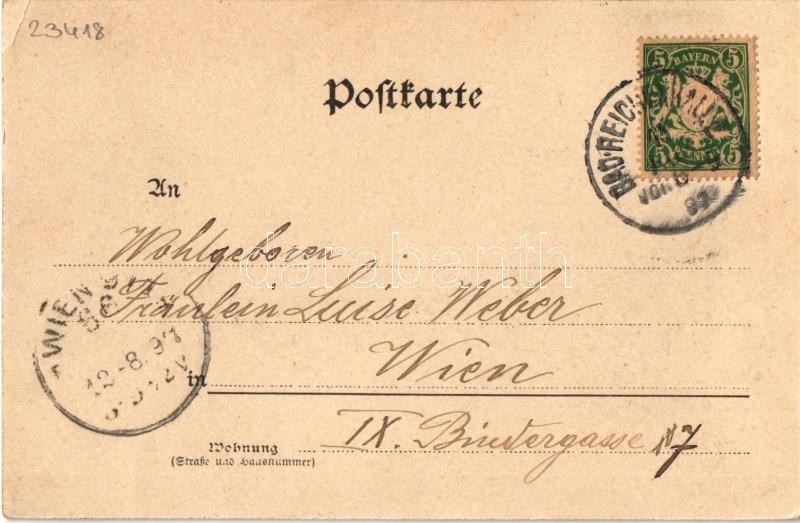 23418
Postkarte
5 BAYERN 5
5 PFENNIG 5
BAD·REICHENHALL
An
Wohlgeboren
Fräulein Luise Weber
WIEN
12.8.97
Wien
in
Wohnung
(Straße und Hausnummer)
IX. Bindergasse № 7
darabanth